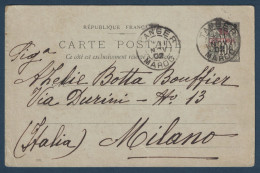 RÉPUBLIQUE FRANÇAISE
CARTE POSTALE
Ce côté est exclusivement réservé à l'adresse
TANGER
02
MAROC
TANGER
02
MAROC
Atelie Botta Bouffier
Via Durini - No 13
(Italia) Milano